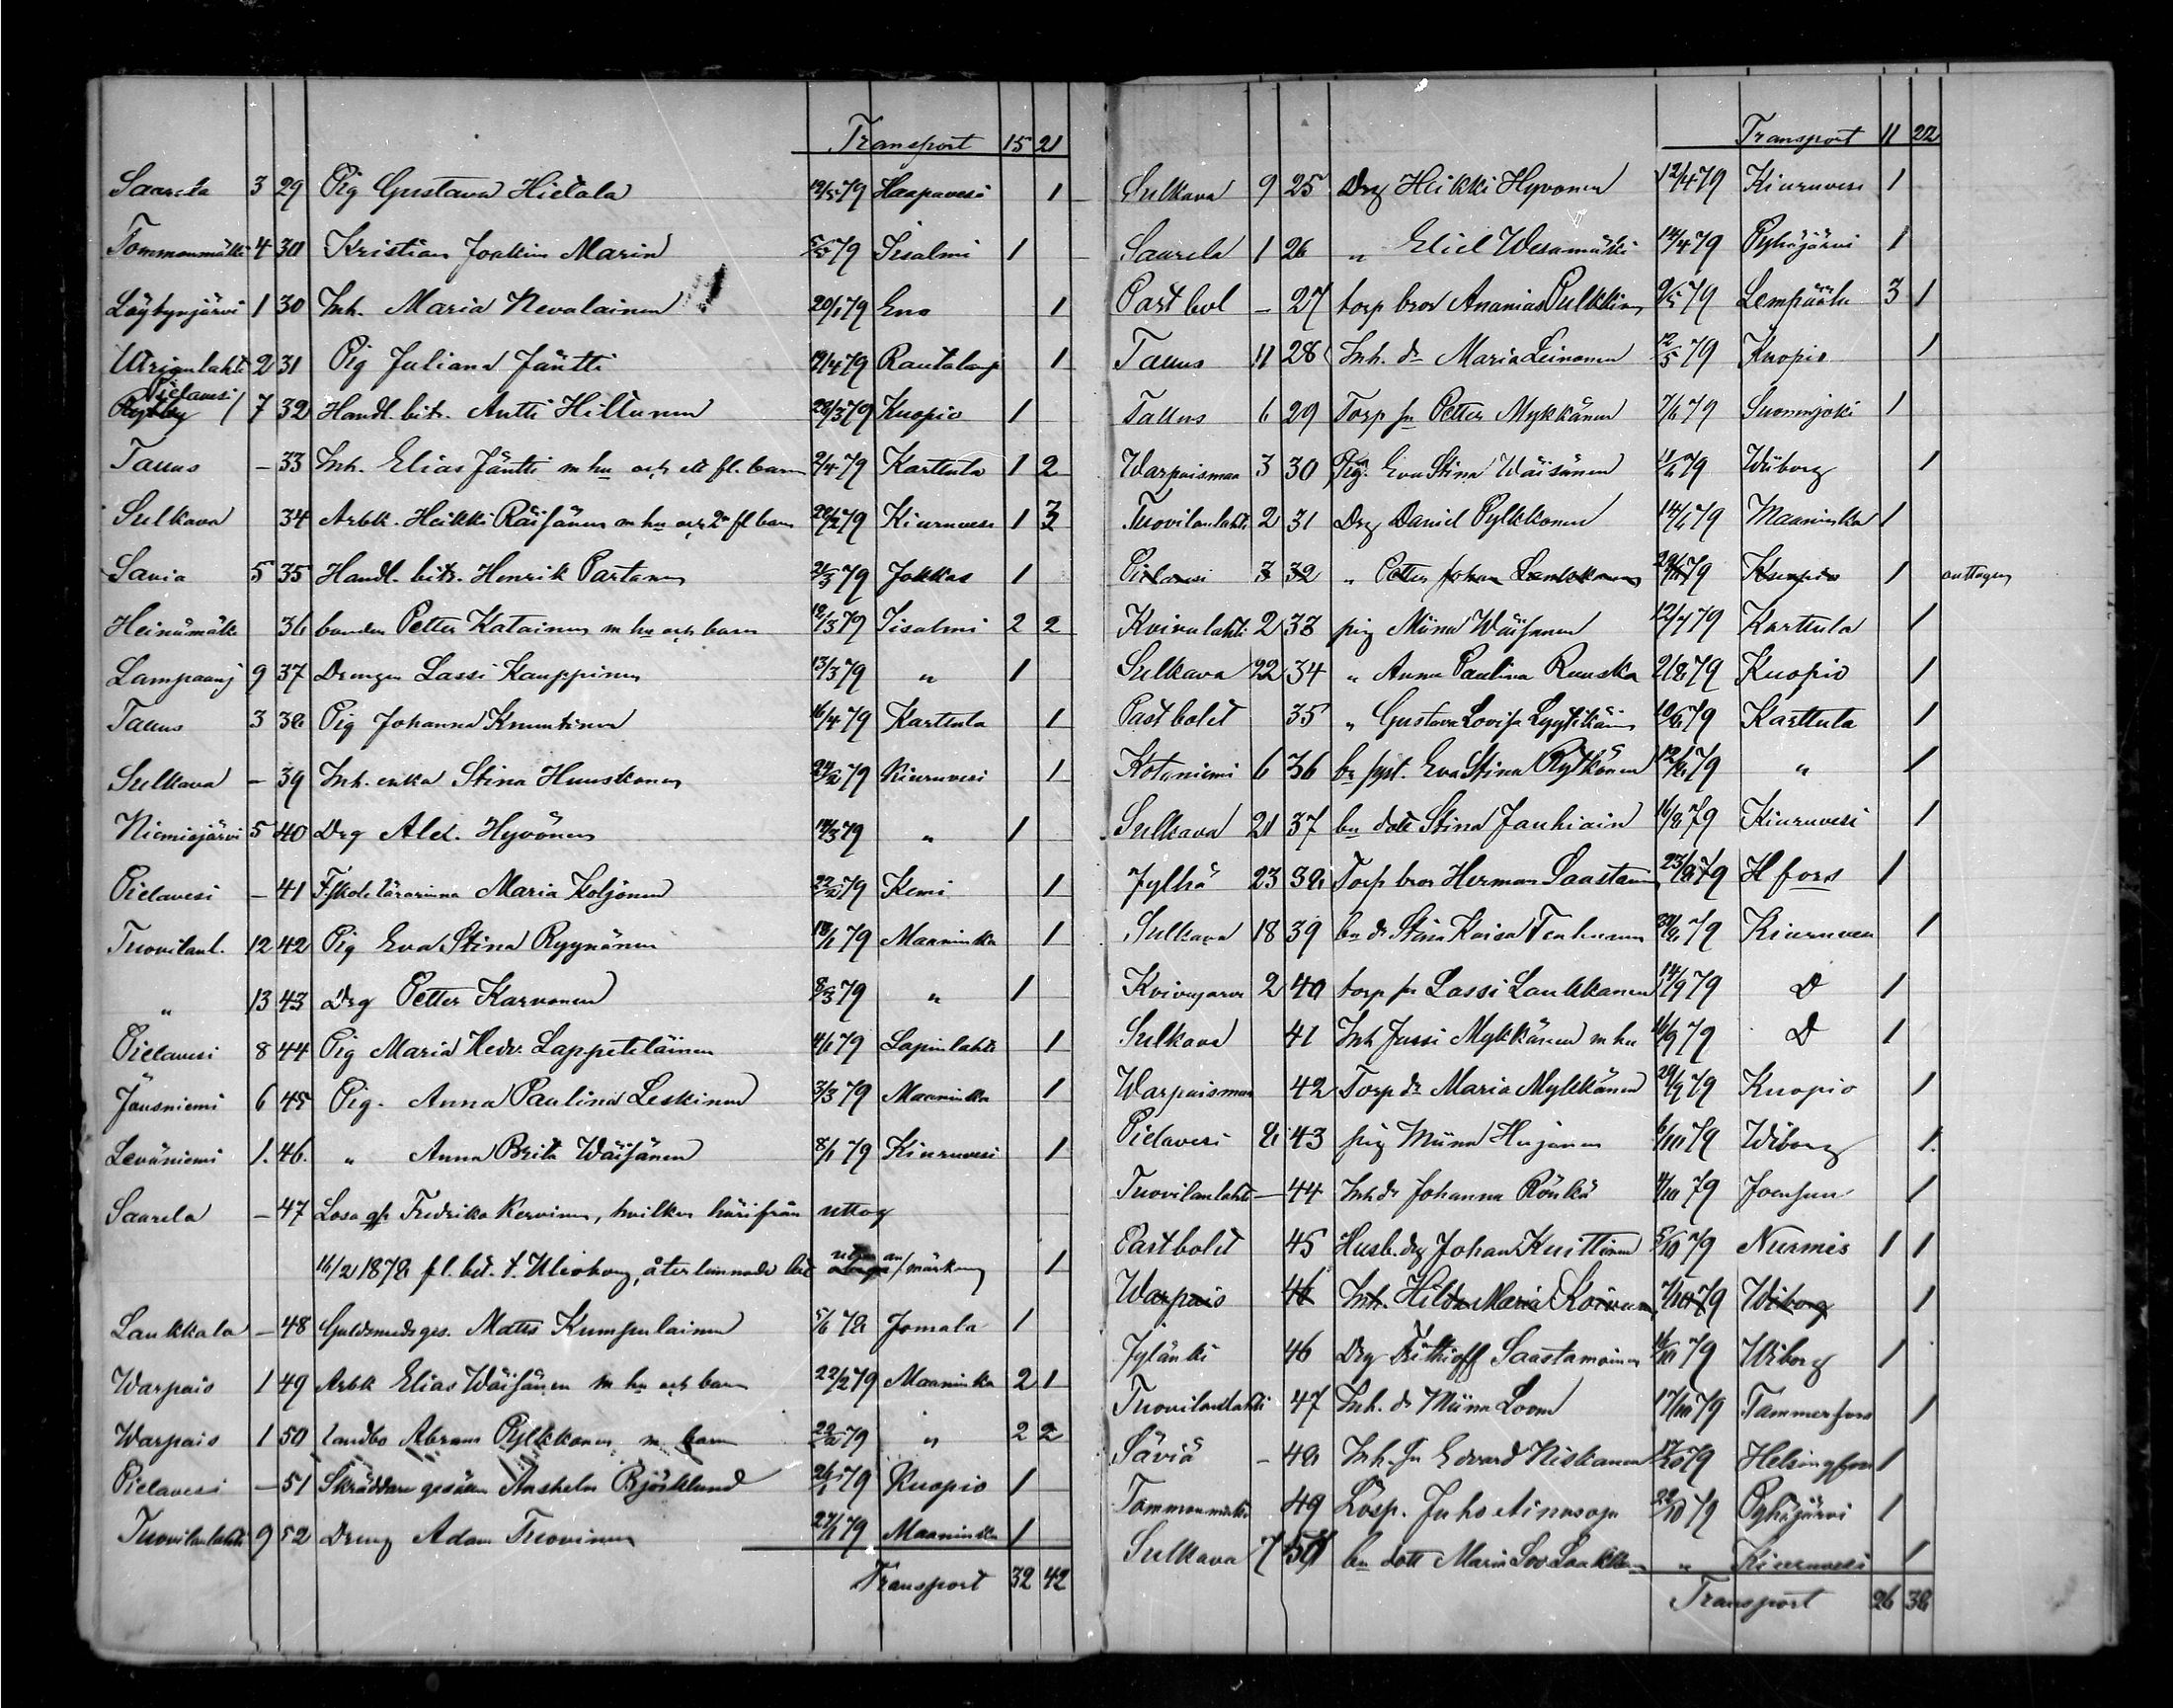 Transport 15 21
Saarela 3 29 Pig Gustava Hietala 12/5 79 Haapavesi 1
Tommonmäki 4 30 Kristian Joakim Marin 5/5 79 Iisalmi 1
Löytynjärvi 1 30 Inh. Maria Nevalainen 20/1 79 Eno 1
2 31 Pig Juliana Jäntti 12/4 79 Rautalamp 1
Pielavesi
7 32 Handl. bitr. Antti Hiltunen 28/3 79 Kuopio 1
Taius – 33 Inh. Elias Jäntti m hu och ett fl. barn 2/4 79 Karttula 1 2
Sulkava 34 Arbk. Heikki Räisänen m hu och 2 fl barn 20/2 79 Kiuruvesi 1 3
Savia 5 35 Handl. bitr. Henrik Partanen 21/3 79 Jokkas 1
Heinämäki 36 bonden Petter Katainen m hu och barn 12/3 79 Iisalmi 2 2
Lampaanj 9 37 Drengen Lassi Kauppinen 13/3 79 " 1
Taius 3 38 Pig Johanna Knuutinen 16/4 79 Karttula 1
Sulkava – 39 Inh. enka Stina Huuskonen 24/2 79 Kiuruvesi 1
Niemisjärvi 5 40 Drg Alex. Hyvönen 12/3 79 " 1
Pielavesi – 41 F.skolelärarinna Maria Koljonen 22/2 79 Kemi 1
Tuovilanl. 12 42 Pig Eva Stina Ryynänen 18/1 79 Maaninka 1
" 13 43 Drg Petter Karvonen 8/3 79 " 1
Pielavesi 8 44 Pig Maria Hedv. Lappeteläinen 4/1 79 Lapinlahti 1
Jäusniemi 6 45 Pig. Anna Paulina Leskinen 3/3 79 Maaninka 1
Leväniemi 1. 46. " Anna Brita Wäisänen 8/1 79 Kiuruvesi 1
Saarela – 47 Lösa qp. Fredrika Kervinen, hvilken härifrån uttog
16/2 1878 fl. bet. t. Uleåborg, återlemnade bet utan an/märkning 1
Laukkala – 48 Guldsmedsges. Matts Kumpulainen 5/6 78 Jomala 1
Warpais 1 49 Arbk Elias Wäisänen m hu och barn 22/2 79 Maaninka 2 1
Warpais 1 50 landbo Abram Pylkkönen m barn 22/2 79 " 2 2
Pielavesi – 51 Skräddare gesällen Anshelm Björklund 26/1 79 Kuopio 1
Tuovilanlahti 9 52 Dreng Adam Tuovinen 27/1 79 Maaninka 1
Transport 32 42
Transport 11 22
Sulkava 9 25 Drg Heikki Hyvönen 12/4 79 Kiuruvesi 1
Saarela 1 26 " Eliel Wesamäki 14/4 79 Pyhäjärvi 1
Past bol – 27 torp bror Ananias Pulkkinen 9/5 79 Lempäälä 3 1
Taius 11 28 Inh. dr Maria Leinonen 12/5 79 Kuopio 1
Taius 6 29 Torp sn Petter Mykkänen 7/6 79 Suonnejoki 1
Warpaismaa 3 30 Pig. Eva Stina Wäisänen 11/6 79 Wiborg 1
Tuovilanlahti 2 31 Drg Daniel Pylkkönen 14/6 79 Maaninka 1
Pielavesi 3 32 " Petter Johan 79 Kuopio 1
Kvivulahti 2 33 pig Miina Wäisänen 12/7 79 Karttula 1
Sulkava 22 34 " Anna Paulina Ruuska 2/8 79 Kuopio 1
Past bolet 35 " Gustava Lovisa Lyytikäin 10/8 79 Karttula 1
Kotaniemi 6 36 bn syst. Eva Stina Rytkönen 12/8 79 " 1
Sulkava 21 37 bn dott Stina Jauhiain 16/8 79 Kiuruvesi 1
Jylhä 23 38 Torp bror Herman Saastam 23/8 79 H fors 1
Sulkava 18 39 bn dr Stina Kaisa Tenhunen 30/8 79 Kiuruvesi 1
Kvivujarvi 2 40 torp sn Lassi Laukkanen 14/9 79 D 1
Sulkava 41 Inh Jussi Mykkänen m hu 16/9 79 D 1
Warpaismaa 42 Torp dr Maria Mykkänen 29/9 79 Kuopio 1
Pielavesi 8 43 pig Miina Hujanen 6/10 79 Wiborg 1.
Tuovilanlahti – 44 Inh dr Johanna Rönkä 4/10 79 Joensuu 1
Past bolet 45 Husb. drg Johan Kuittinen 5/10 79 Nurmis 1 1
Warpais 46 Inh. Hilda Maria Koivunen 7/10 79 Wiborg 1
Jylänki 46 Drg Frithioff Saastamoinen 16/10 79 Wiborg 1
Tuovilanlahti 47 Inh. dr Miina Loom 17/10 79 Tammerfors 1
Säviä – 48 Inh. sn Edvard Niskanen 17/10 79 Helsingfors 1
Tommonmäki 49 Lösp. Juho Ainasoja 22/10 79 Pyhäjärvi 1
Sulkava 7 50 bn dott Maria Lov Laukkan " Kiuruvesi 1
Transport 26 38